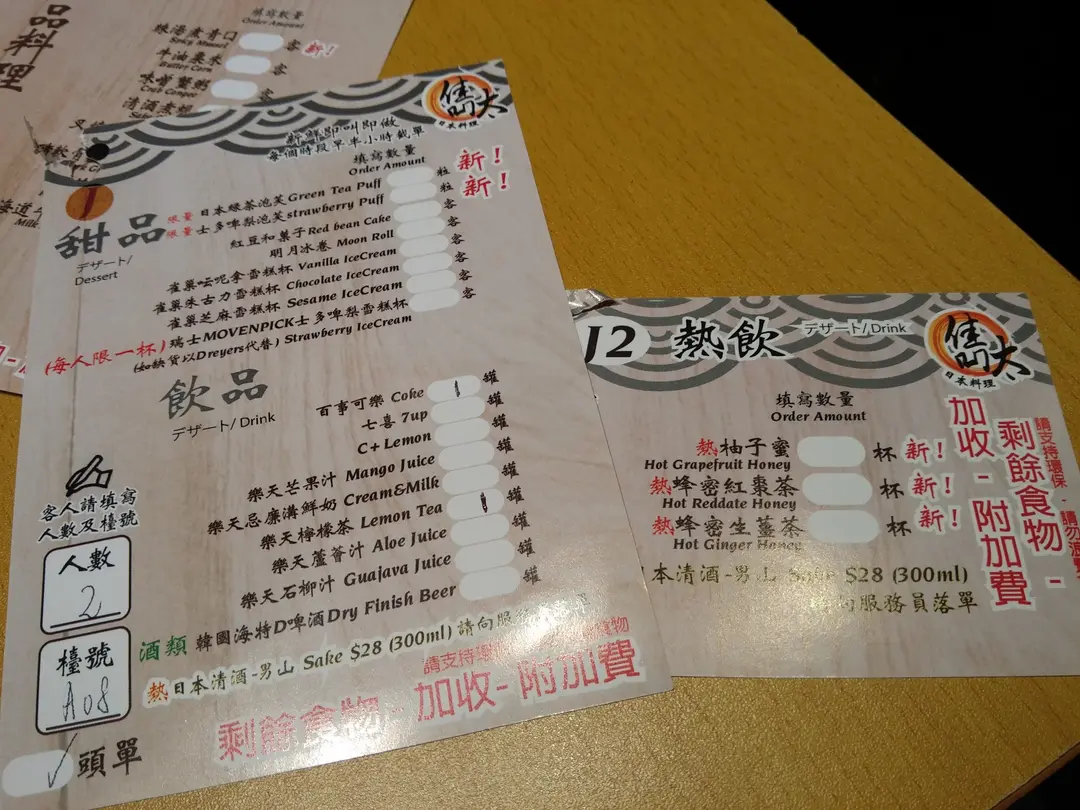 品料理
填寫數量
Order Amount
辣湯煮青口 客 新!
Spicy Mussel
牛油粟米 客
Butter Corn
味噌蟹粥 客
Crab Congee
清酒煮蜆
佳太
日本料理
新鮮即叫即做
每個時段早半小時截單
填寫數量
Order Amount
甜品
デザート/
Dessert
限量 日本綠茶泡芙 Green Tea Puff 粒 新!
限量 士多啤梨泡芙 strawberry Puff 粒 新!
紅豆和菓子 Red bean Cake 客
明月冰卷 Moon Roll 客
雀巢呍呢拿雪糕杯 Vanilla IceCream 客
雀巢朱古力雪糕杯 Chocolate IceCream 客
雀巢芝麻雪糕杯 Sesame IceCream 客
(每人限一杯) 瑞士MOVENPICK士多啤梨雪糕杯 客
(如缺貨以Dreyers代替) Strawberry IceCream
飲品
デザート/ Drink
百事可樂 Coke 1 罐
七喜 7up 罐
C+ Lemon 罐
樂天芒果汁 Mango Juice 罐
樂天忌廉溝鮮奶 Cream&Milk 罐
樂天檸檬茶 Lemon Tea 1 罐
樂天蘆薈汁 Aloe Juice 罐
樂天石柳汁 Guajava Juice 罐
酒類 韓國海特D啤酒 Dry Finish Beer 罐
熱 日本清酒-男山 Sake $28 (300ml) 請向服務員落單
客人請填寫
人數及檯號
人數
2
檯號
A08
✓ 頭單
請支持環保
剩餘食物 - 加收 - 附加費
J2 熱飲 デザート/ Drink
佳太
日本料理
填寫數量
Order Amount
熱柚子蜜 杯 新!
Hot Grapefruit Honey
熱蜂蜜紅棗茶 杯 新!
Hot Reddate Honey
熱蜂蜜生薑茶 杯 新!
Hot Ginger Honey
本清酒-男山 Sake $28 (300ml)
請向服務員落單
請支持環保 - 請勿浪費
剩餘食物 -
加收 - 附加費